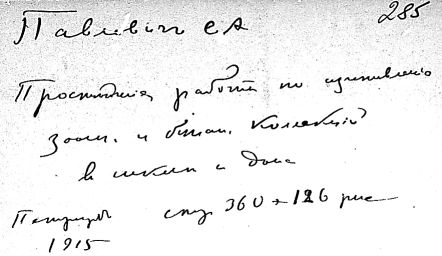 285
Павлович СА
Простейшие работы по изготовлению
зоол. и ботан. коллекций
в школе и дома
Петроград стр 360 + 126 рис
1915